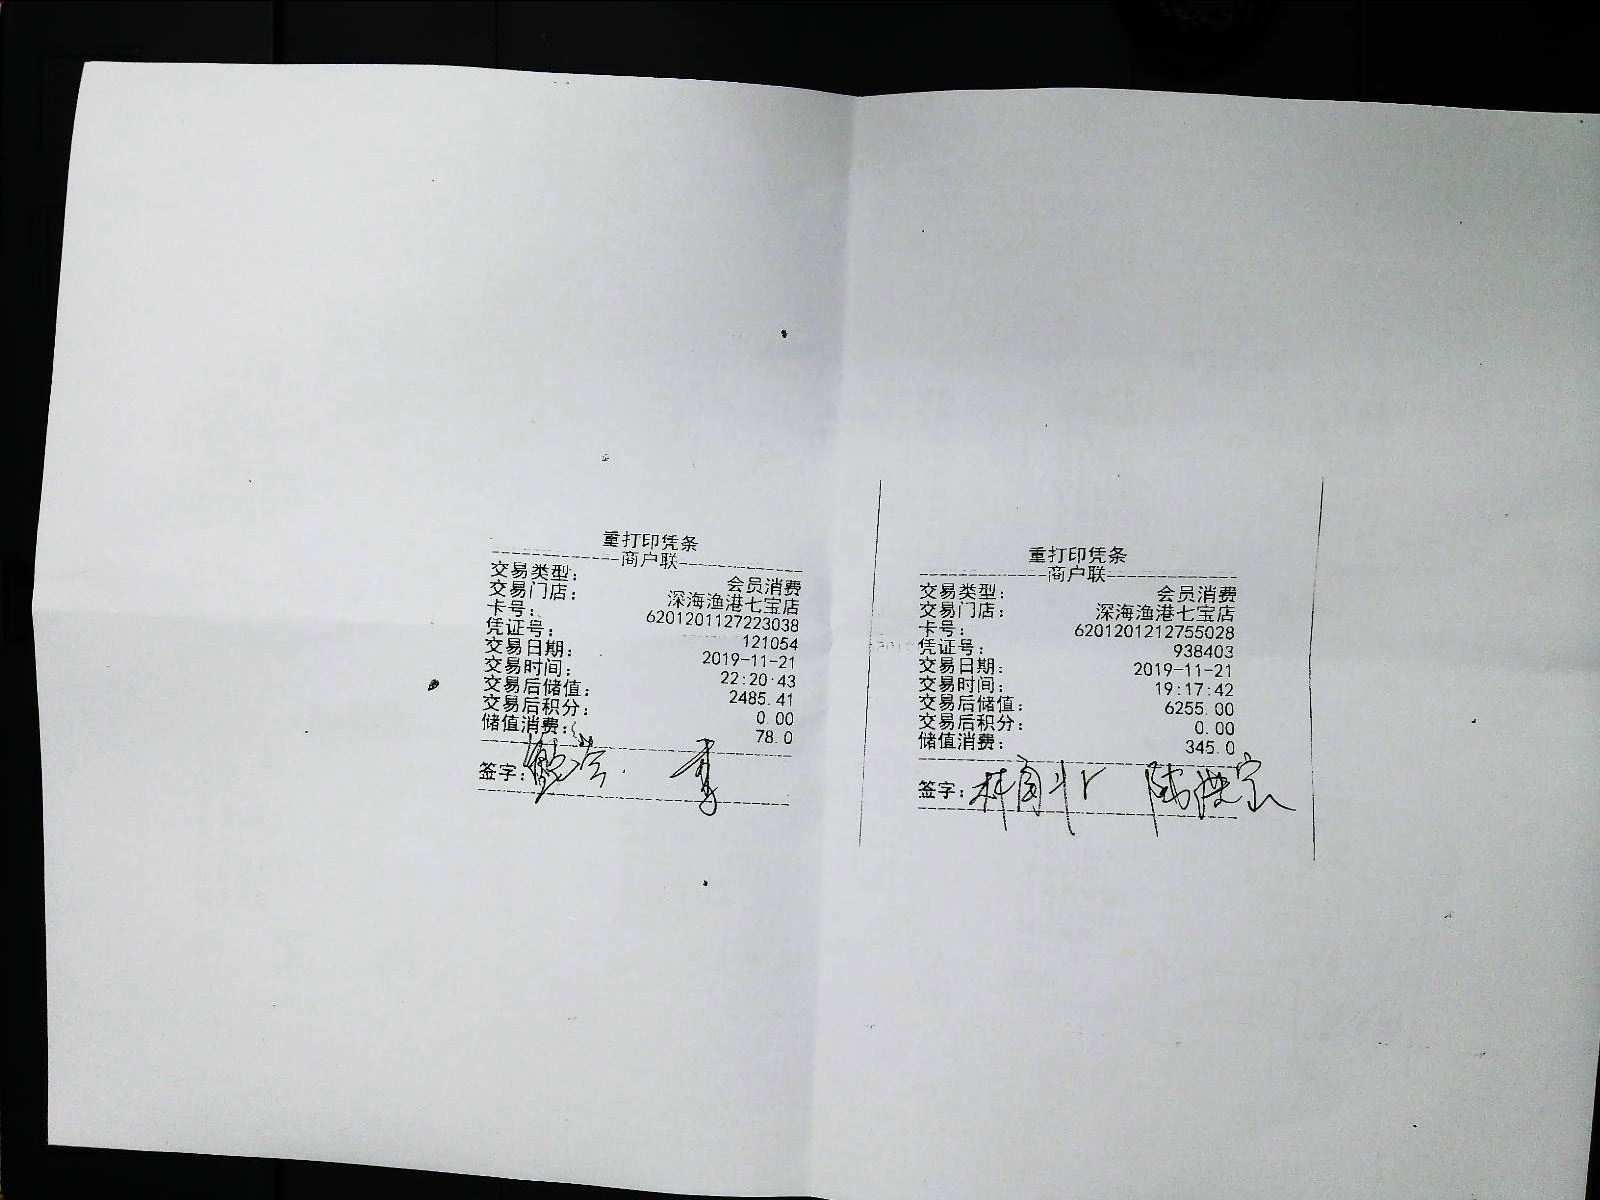 重打印凭条
商户联
交易类型: 会员消费
交易门店: 深海渔港七宝店
卡号: 6201201127223038
凭证号: 121054
交易日期: 2019-11-21
交易时间: 22:20:43
交易后储值: 2485.41
交易后积分: 0.00
储值消费: 78.0
签字:
重打印凭条
商户联
交易类型: 会员消费
交易门店: 深海渔港七宝店
卡号: 6201201212755028
凭证号: 938403
交易日期: 2019-11-21
交易时间: 19:17:42
交易后储值: 6255.00
交易后积分: 0.00
储值消费: 345.0
签字: